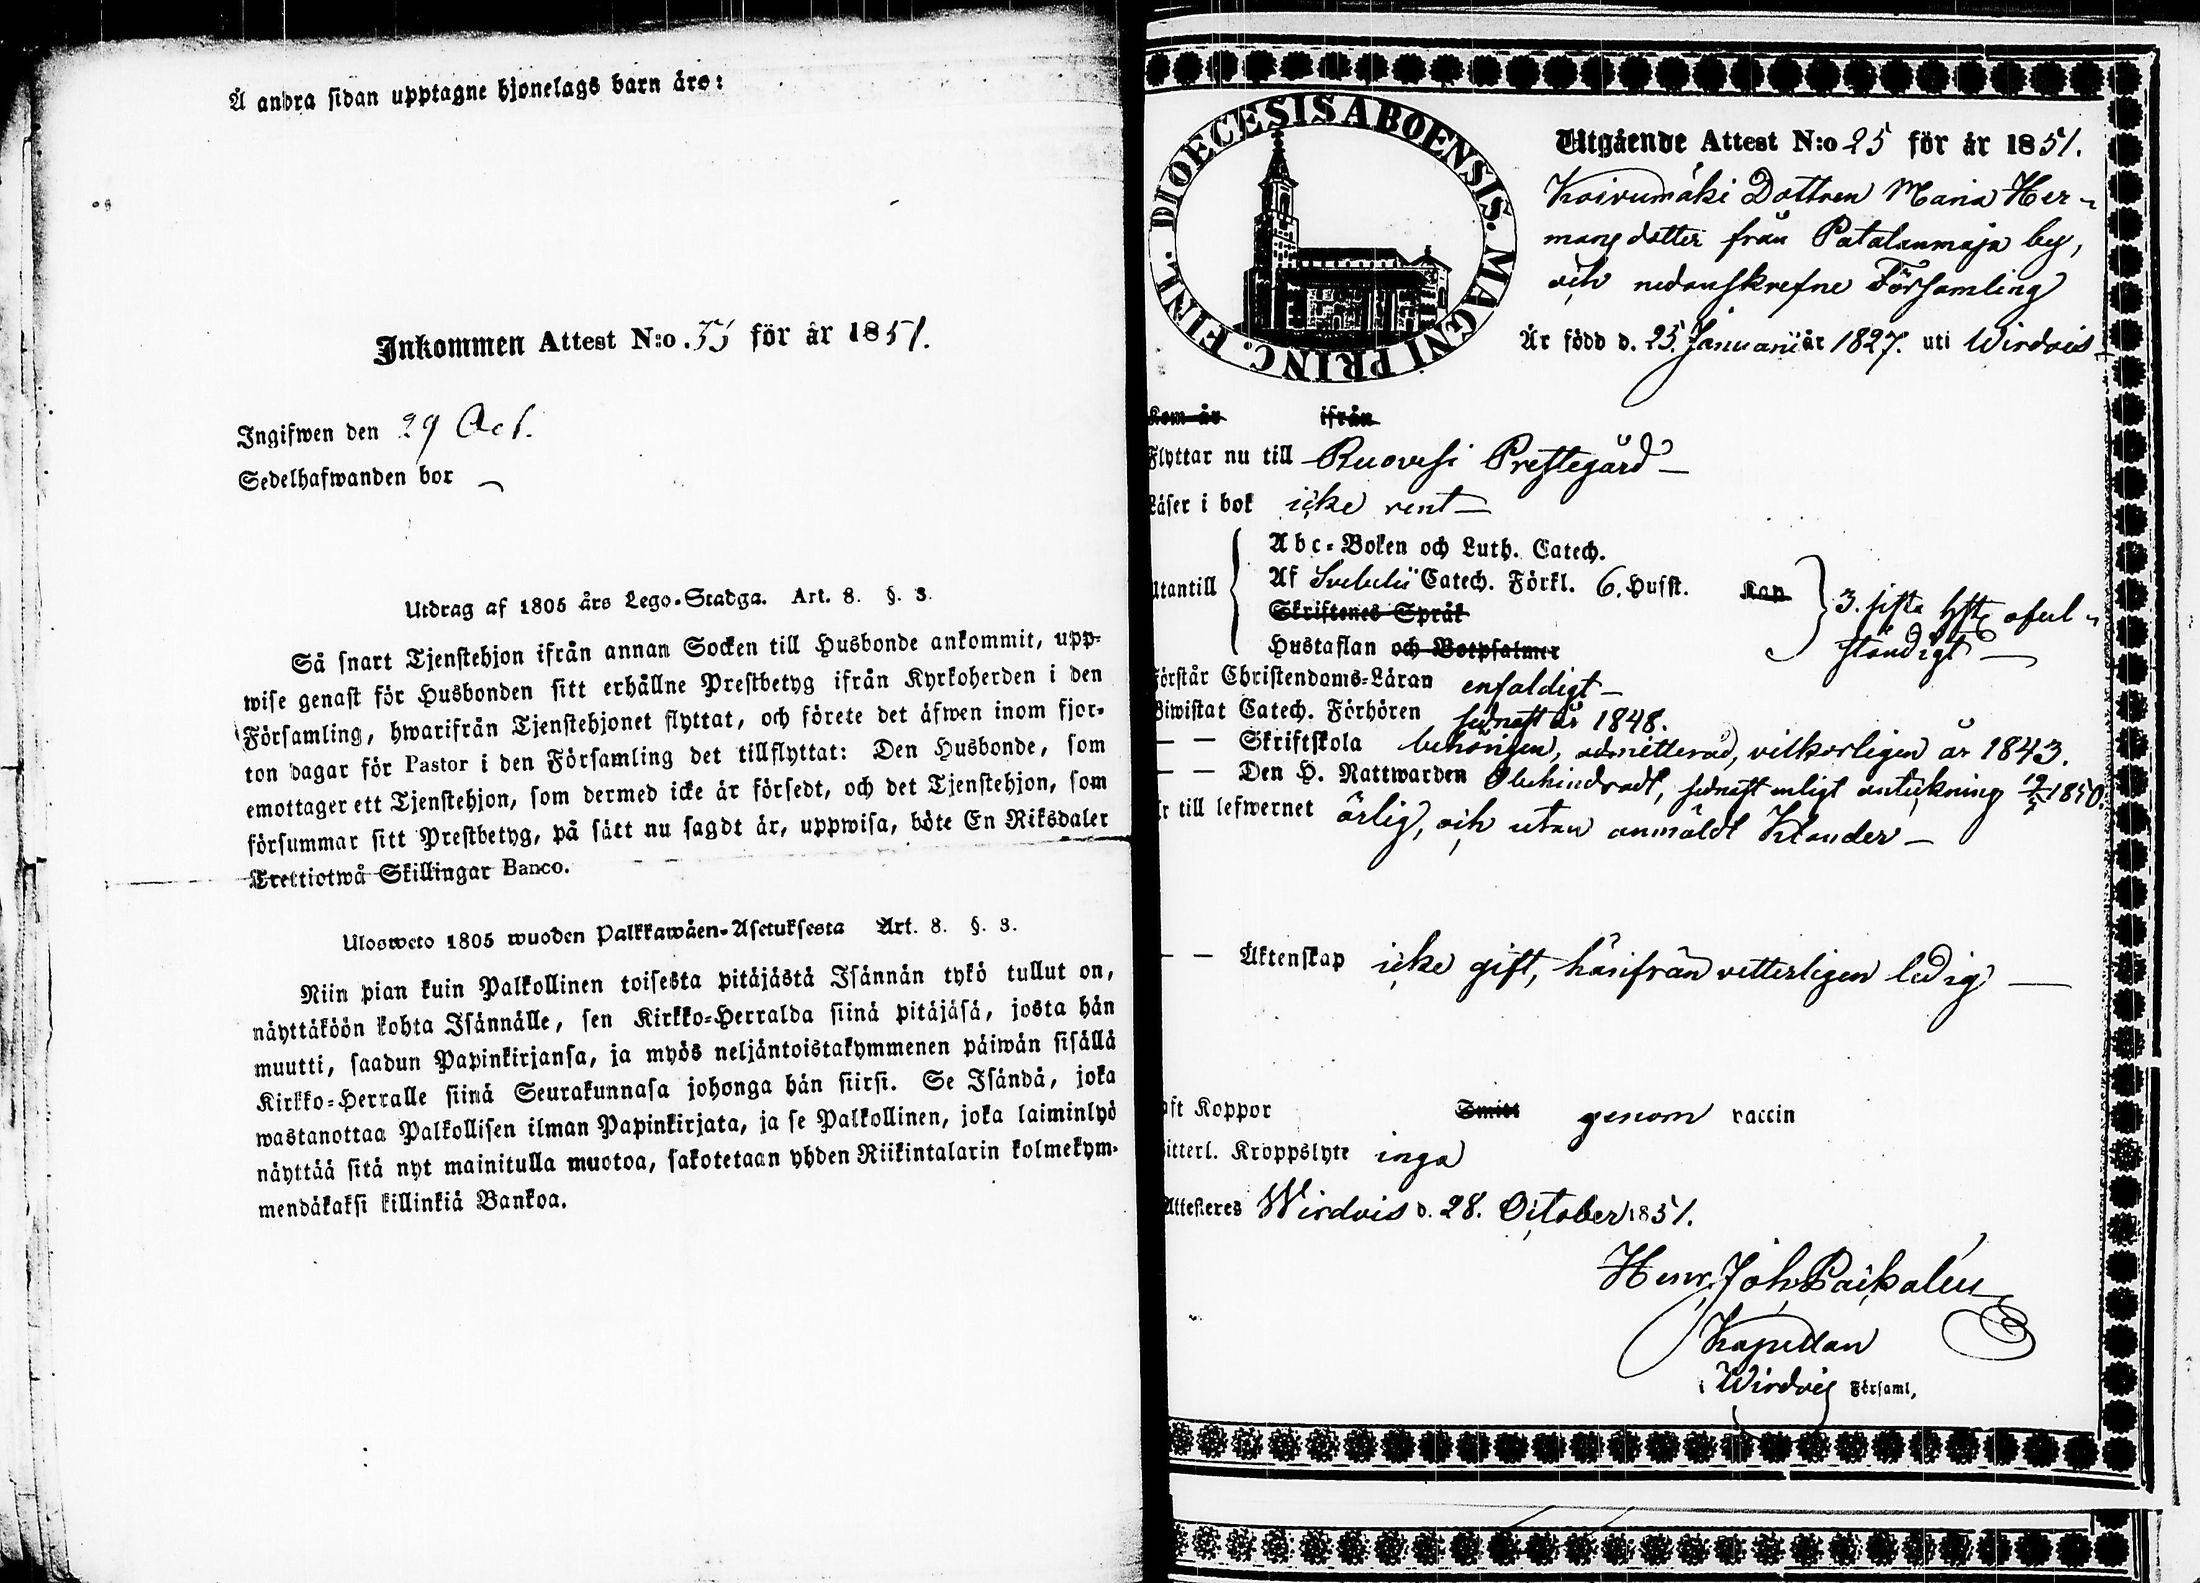 Å andra sidan upptagne hjonelags barn äro:
Inkommen Attest N:o 55 för år 1851.
Ingifwen den 29 Oct.
Sedelhafwanden bor
Utdrag af 1805 års Lego-Stadga. Art. 8. §. 3.
Så snart Tjenstehjon ifrån annan Socken till Husbonde ankommit, upp-
wise genast för Husbonden sitt erhållne Prestbetyg ifrån Kyrkoherden i den
Församling, hwarifrån Tjenstehjonet flyttat, och förete det äfwen inom fjor-
ton dagar för Pastor i den Församling det tillflyttat: Den Husbonde, som
emottager ett Tjenstehjon, som dermed icke är försedt, och det Tjenstehjon, som
försummar sitt Prestbetyg, på sätt nu sagdt är, uppwisa, böte En Riksdaler
Trettiotwå Skillingar Banco.
Ulosweto 1805 wuoden Palkkawäen-Asetuksesta Art. 8. §. 3.
Niin pian kuin Palkollinen toisesta pitäjästä Isännän tykö tullut on,
näyttäköön kohta Isännälle, sen Kirkko-Herralda siinä pitäjäsä, josta hän
muutti, saadun Papinkirjansa, ja myös neljäntoistakymmenen päiwän sisällä
Kirkko-Herralle siinä Seurakunnasa johonga hän siirsi. Se Isändä, joka
wastanottaa Palkollisen ilman Papinkirjata, ja se Palkollinen, joka laiminlyö
näyttää sitä nyt mainitulla muotoa, sakotetaan yhden Riikintalarin kolmekym-
mendäkaksi killinkiä Bankoa.
DIOECESIS ABOENSIS. MAGNI PRINC. FINL.
Utgående Attest N:o 25 för år 1851.
Koivumäki Dottren Maria Her-
mansdotter från Patalanmaja by,
och nedanskrefne Församling
Är född d. 25. Januarii år 1827. uti Wirdois
Kom år ifrån
Flyttar nu till Ruovesi Prestegård
Läser i bok icke rent
Utantill
Abc-Boken och Luth. Catech.
Af Svebelii Catech. Förkl. 6. Hufst. Kap
Skriftenes Språk
Hustaflan och Botpsalmer
3. sista hfst. oful-
ständigt
Förstår Christendoms-Läran enfaldigt
Biwistat Catech. Förhören sednast år 1848.
— — Skriftskola behörigen, admitterad, vilkorligen år 1843.
— — Den H. Nattwarden Obehindradt, sednast enligt anteckning 1850.
Är till lefwernet ärlig, och utan anmäldt klander
— — Äktenskap icke gift, härifrån vetterligen ledig
Haft Koppor Smitt genom vaccin
Witterl. Kroppslyte inga
Attesteres Wirdois d. 28. October 1851.
Henr. Joh. Paikalén
Kapellan
i Wirdois Församl,